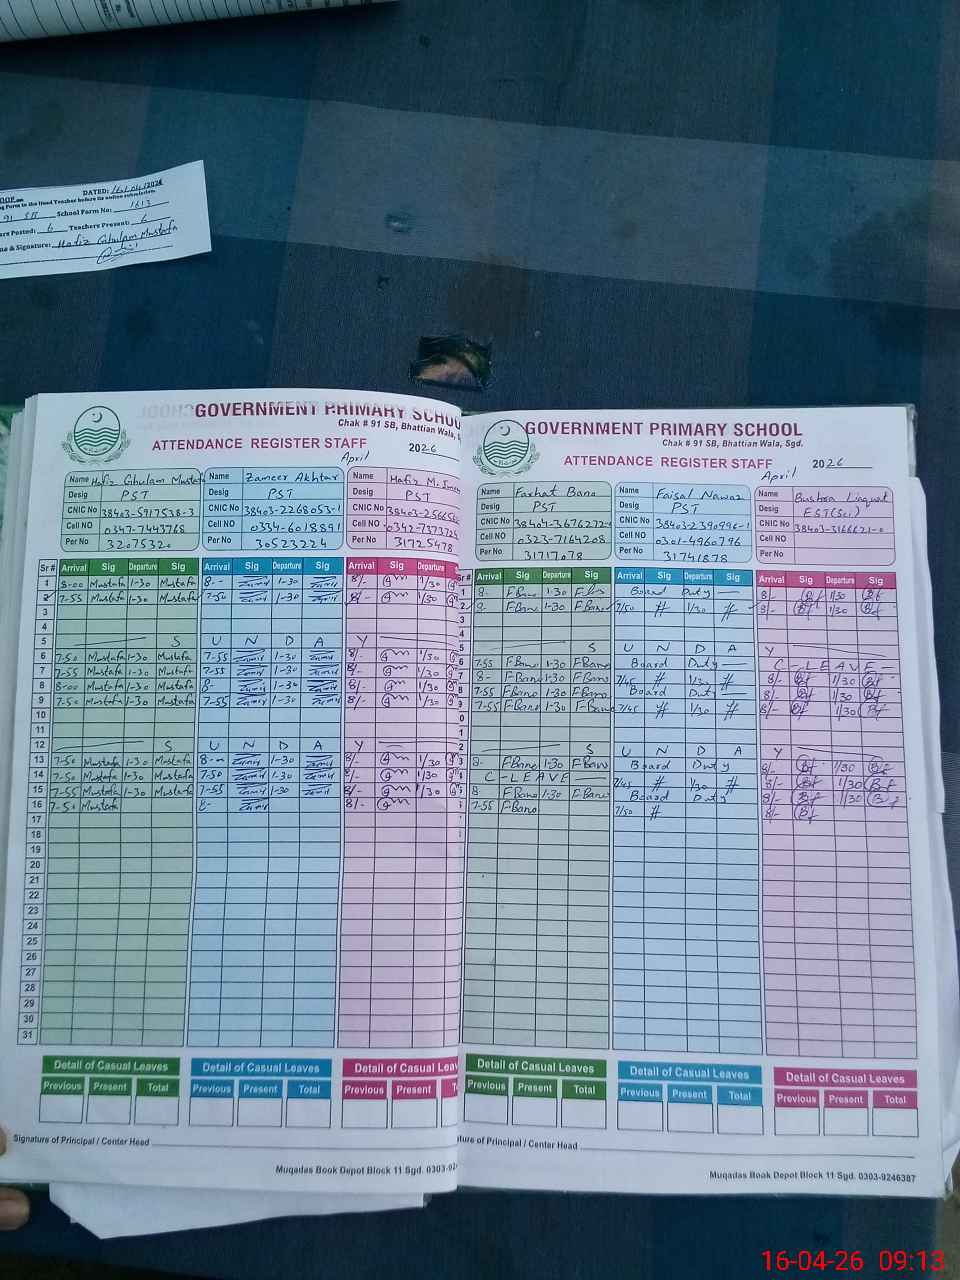 DATED: 16/04/2026
ng Form to the Head Teacher before its online submission.
91 SB School Form No: 1613
ers Posted: 6 Teachers Present: 6
me & Signature: Hafiz Ghulam Mustafa
GOVERNMENT PRIMARY SCHOO
Chak # 91 SB, Bhattian Wala, S
ATTENDANCE REGISTER STAFF
April 2026
Name Hafiz Ghulam Mustafa Name Zameer Akhtar Name Hafiz M.
Desig PST Desig PST Desig PST
CNIC No 38403-5917538-3 CNIC No 38403-2268053-1 CNIC No
Cell NO 0347-7443768 Cell NO 0334-6018891 Cell NO
Per No 32075320 Per No 30523224 Per No 31725478
Sr # Arrival Sig Departure Sig Arrival Sig Departure Sig Arrival Sig Departure
1 8-00 Mustafa 1-30 Mustafa 8-- Zamir 1-30 Zamir 8/- 1/30
2 7-55 Mustafa 1-30 Mustafa 7-50 Zamir 1-30 Zamir 8/- 1/30
3
4
5 S U N D A Y
6 7-50 Mustafa 1-30 Mustafa 7-55 Zamir 1-30 Zamir 8/- 1/30
7 7-55 Mustafa 1-30 Mustafa 7-55 Zamir 1-30 Zamir 8/- 1/30
8 8-00 Mustafa 1-30 Mustafa 8- Zamir 1-30 Zamir 8/- 1/30
9 7-50 Mustafa 1-30 Mustafa 7-55 Zamir 1-30 Zamir 8/- 1/30
10
11
12 S U N D A Y
13 7-50 Mustafa 1-30 Mustafa 8-- Zamir 1-30 Zamir 8/- 1/30
14 7-50 Mustafa 1-30 Mustafa 7-50 Zamir 1-30 Zamir 8/- 1/30
15 7-55 Mustafa 1-30 Mustafa 7-55 Zamir 1-30 Zamir 8/- 1/30
16 7-50 Mustafa 8- Zamir 8/-
17
18
19
20
21
22
23
24
25
26
27
28
29
30
31
Detail of Casual Leaves Detail of Casual Leaves Detail of Casual Leav
Previous Present Total Previous Present Total Previous Present To
Signature of Principal / Center Head
Muqadas Book Depot Block 11 Sgd. 0303-92
GOVERNMENT PRIMARY SCHOOL
Chak # 91 SB, Bhattian Wala, Sgd.
ATTENDANCE REGISTER STAFF
April 2026
Name Farhat Bano Name Faisal Nawaz Name Bushra Liaquat
Desig PST Desig PST Desig EST(Sci)
CNIC No CNIC No 38403-2390996-1 CNIC No 38403-3166621-0
Cell NO 0323-7164208 Cell NO 0301-4960796 Cell NO
Per No 31717078 Per No 31741878 Per No
Sr # Arrival Sig Departure Sig Arrival Sig Departure Sig Arrival Sig Departure Sig
1 8- FBano 1-30 FBano Board Duty 8/- Bf 1/30 Bf
2 8- FBano 1-30 FBano 7/50 # 1/30 # 8/- Bf 1/30 Bf
5 S U N D A Y
6 7-55 FBano 1-30 FBano Board Duty C-LEAVE
7 8- FBano 1-30 FBano 7/45 # 1/30 # 8/- Bf 1/30 Bf
8 7-55 FBano 1-30 FBano Board Duty 8/- Bf 1/30 Bf
9 7-55 FBano 1-30 FBano 7/45 # 1/30 # 8/- Bf 1/30 Bf
0
2 S U N D A Y
3 8- FBano 1-30 FBano Board Duty 8/- Bf 1/30 Bf
C-LEAVE 7/45 # 1/30 # 8/- Bf 1/30 Bf
8- FBano 1-30 FBano Board Duty 8/- Bf 1/30 Bf
7-55 FBano 7/50 # 8/- Bf
Detail of Casual Leaves Detail of Casual Leaves Detail of Casual Leaves
Previous Present Total Previous Present Total Previous Present Total
ture of Principal / Center Head
Muqadas Book Depot Block 11 Sgd. 0303-9246387
16-04-26 09:13